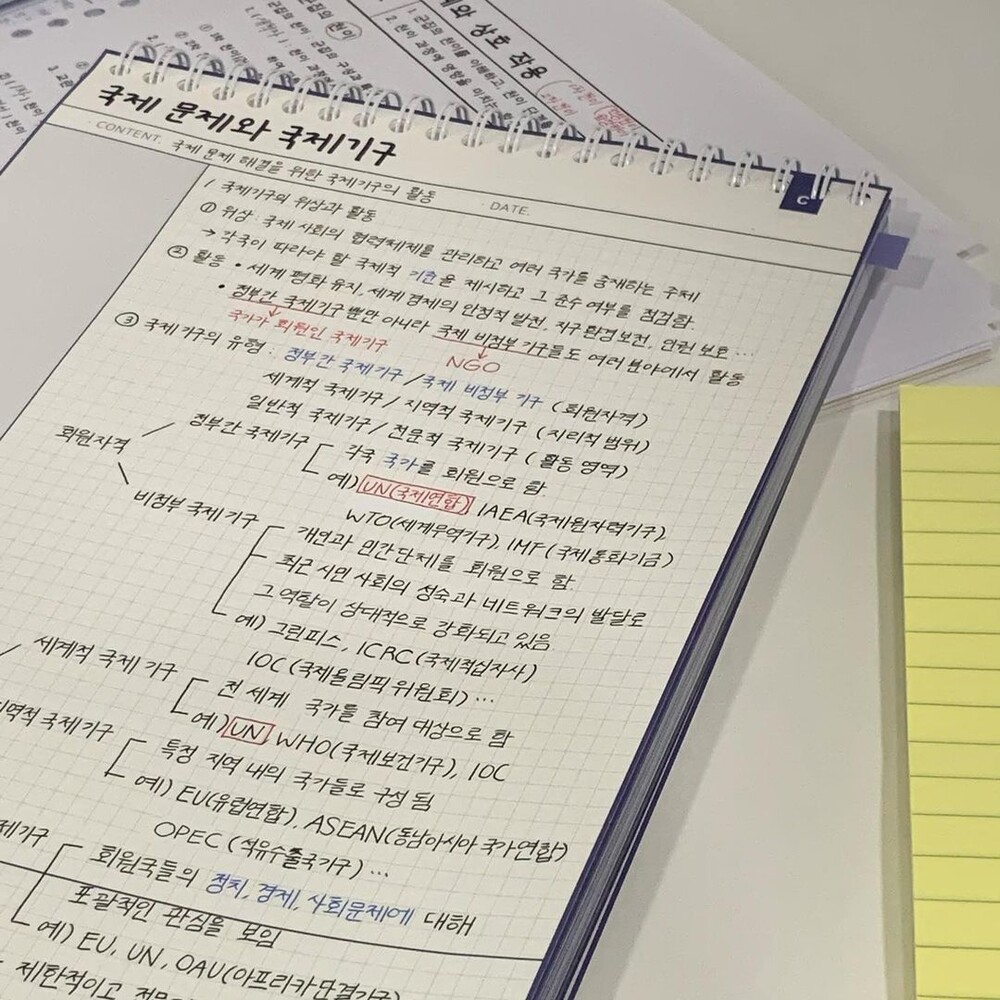 국제 문제와 국제기구
CONTENT. 국제 문제 해결을 위한 국제기구의 활동
DATE.
C
1. 국제기구의 위상과 활동
① 위상: 국제 사회의 협력체제를 관리하고 여러 국가를 중재하는 주체
→ 각국이 따라야 할 국제적 기준을 제시하고 그 준수 여부를 점검함.
② 활동 • 세계 평화 유지, 세계 경제의 안정적 발전, 지구 환경 보전, 인권 보호 …
• 정부간 국제기구 뿐만 아니라 국제 비정부 기구들도 여러 분야에서 활동
국가가 회원인 국제기구
NGO
③ 국제기구의 유형: 정부간 국제기구 / 국제 비정부 기구 (회원자격)
세계적 국제기구 / 지역적 국제기구 (지리적 범위)
일반적 국제기구 / 전문적 국제기구 (활동 영역)
회원자격
정부간 국제기구
각국 국가를 회원으로 함
예) UN(국제연합), IAEA(국제원자력기구),
WTO(세계무역기구), IMF(국제통화기금)
비정부 국제기구
개인과 민간단체를 회원으로 함
최근 시민 사회의 성숙과 네트워크의 발달로
그 역할이 상대적으로 강화되고 있음
예) 그린피스, ICRC(국제적십자사)
IOC(국제올림픽위원회) …
세계적 국제기구
전 세계 국가를 참여 대상으로 함
예) UN, WHO(국제보건기구), IOC
지역적 국제기구
특정 지역 내의 국가들로 구성됨
예) EU(유럽연합), ASEAN(동남아시아 국가연합)
OPEC (석유수출국기구) …
회원국들의 정치, 경제, 사회문제에 대해
포괄적인 관심을 보임
예) EU, UN, OAU(아프리카단결기구)
제한적이고
상호 작용
1. 군집의 천이를 이해하고, 천이
2. 천이 과정에 영향을 미치는